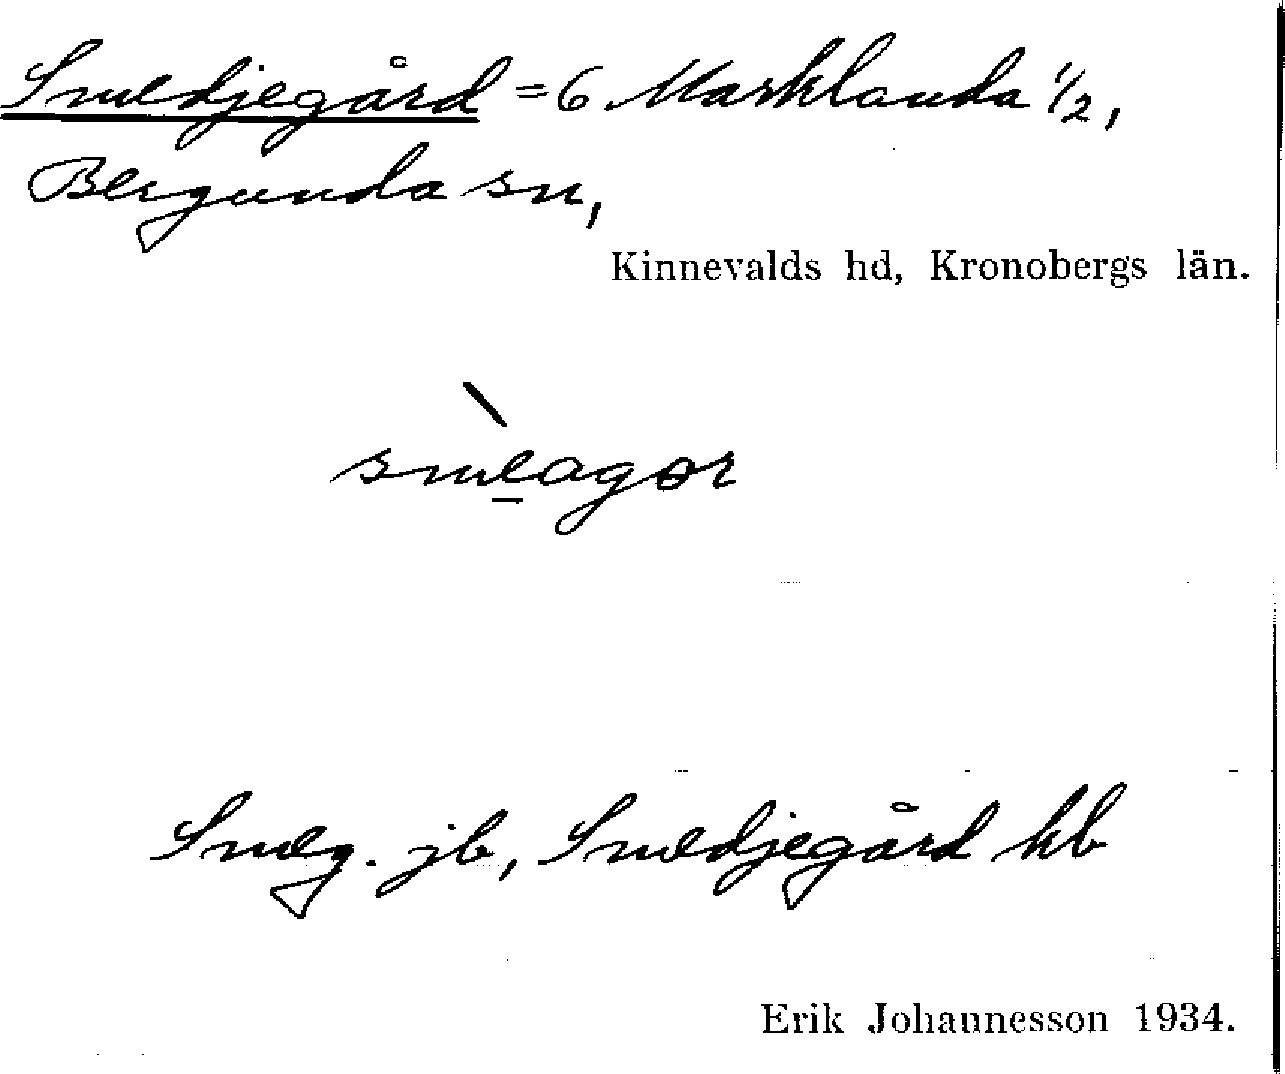 Smedjegård = 6 Marklanda 1/2,
Bergunda sn,
Kinnevalds hd, Kronobergs län.
Smeg. jb, Smedjegård kb
Erik Johannesson 1934.